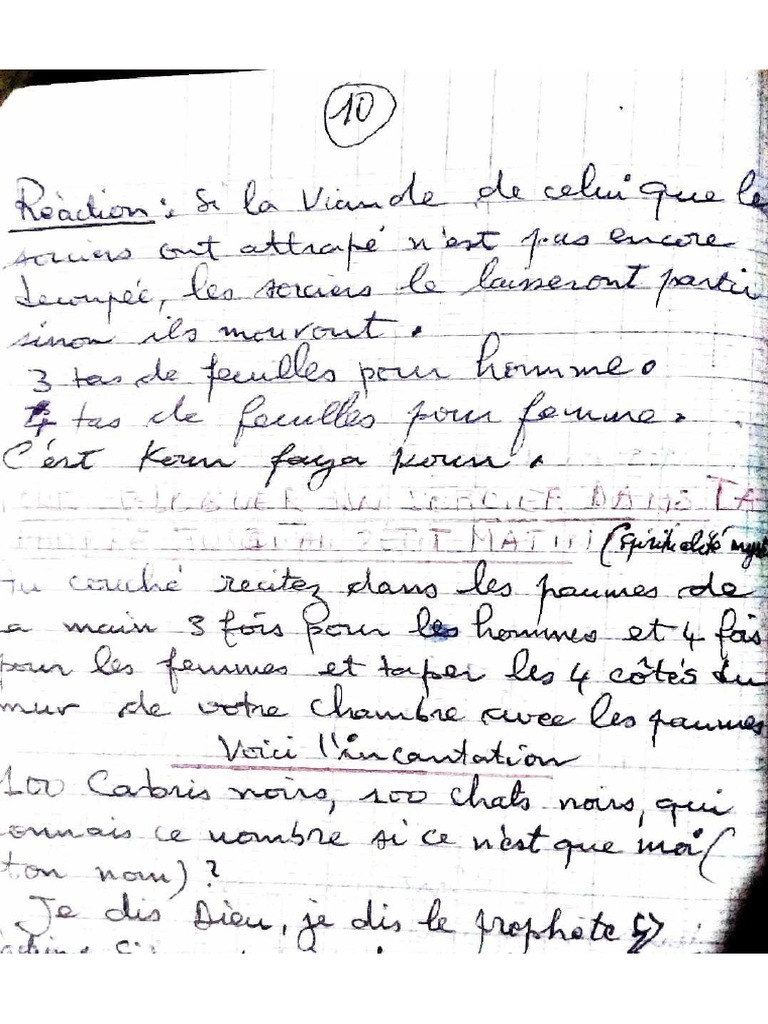 10
Réaction : Si la Viande de celui que le
sorciers ont attrapé n'est pas encore
decoupée, les sorciers le laisseront partir
sinon ils mouront.
3 tas de feuilles pour homme.
4 tas de feuilles pour femme.
C'est Koun faya Koun.
SORCIER DANS TA
PETIT MATIN (Spiritualité mys
tu couché recitez dans les paumes de
a main 3 fois pour les hommes et 4 fois
pour les femmes et taper les 4 côtés du
mur de votre chambre avec les paumes
Voici l'incantation
100 Cabris noirs, 100 chats noirs, qui
onnais ce nombre si ce n'est que moi (
ton nom) ?
Je dis Dieu, je dis le prophète